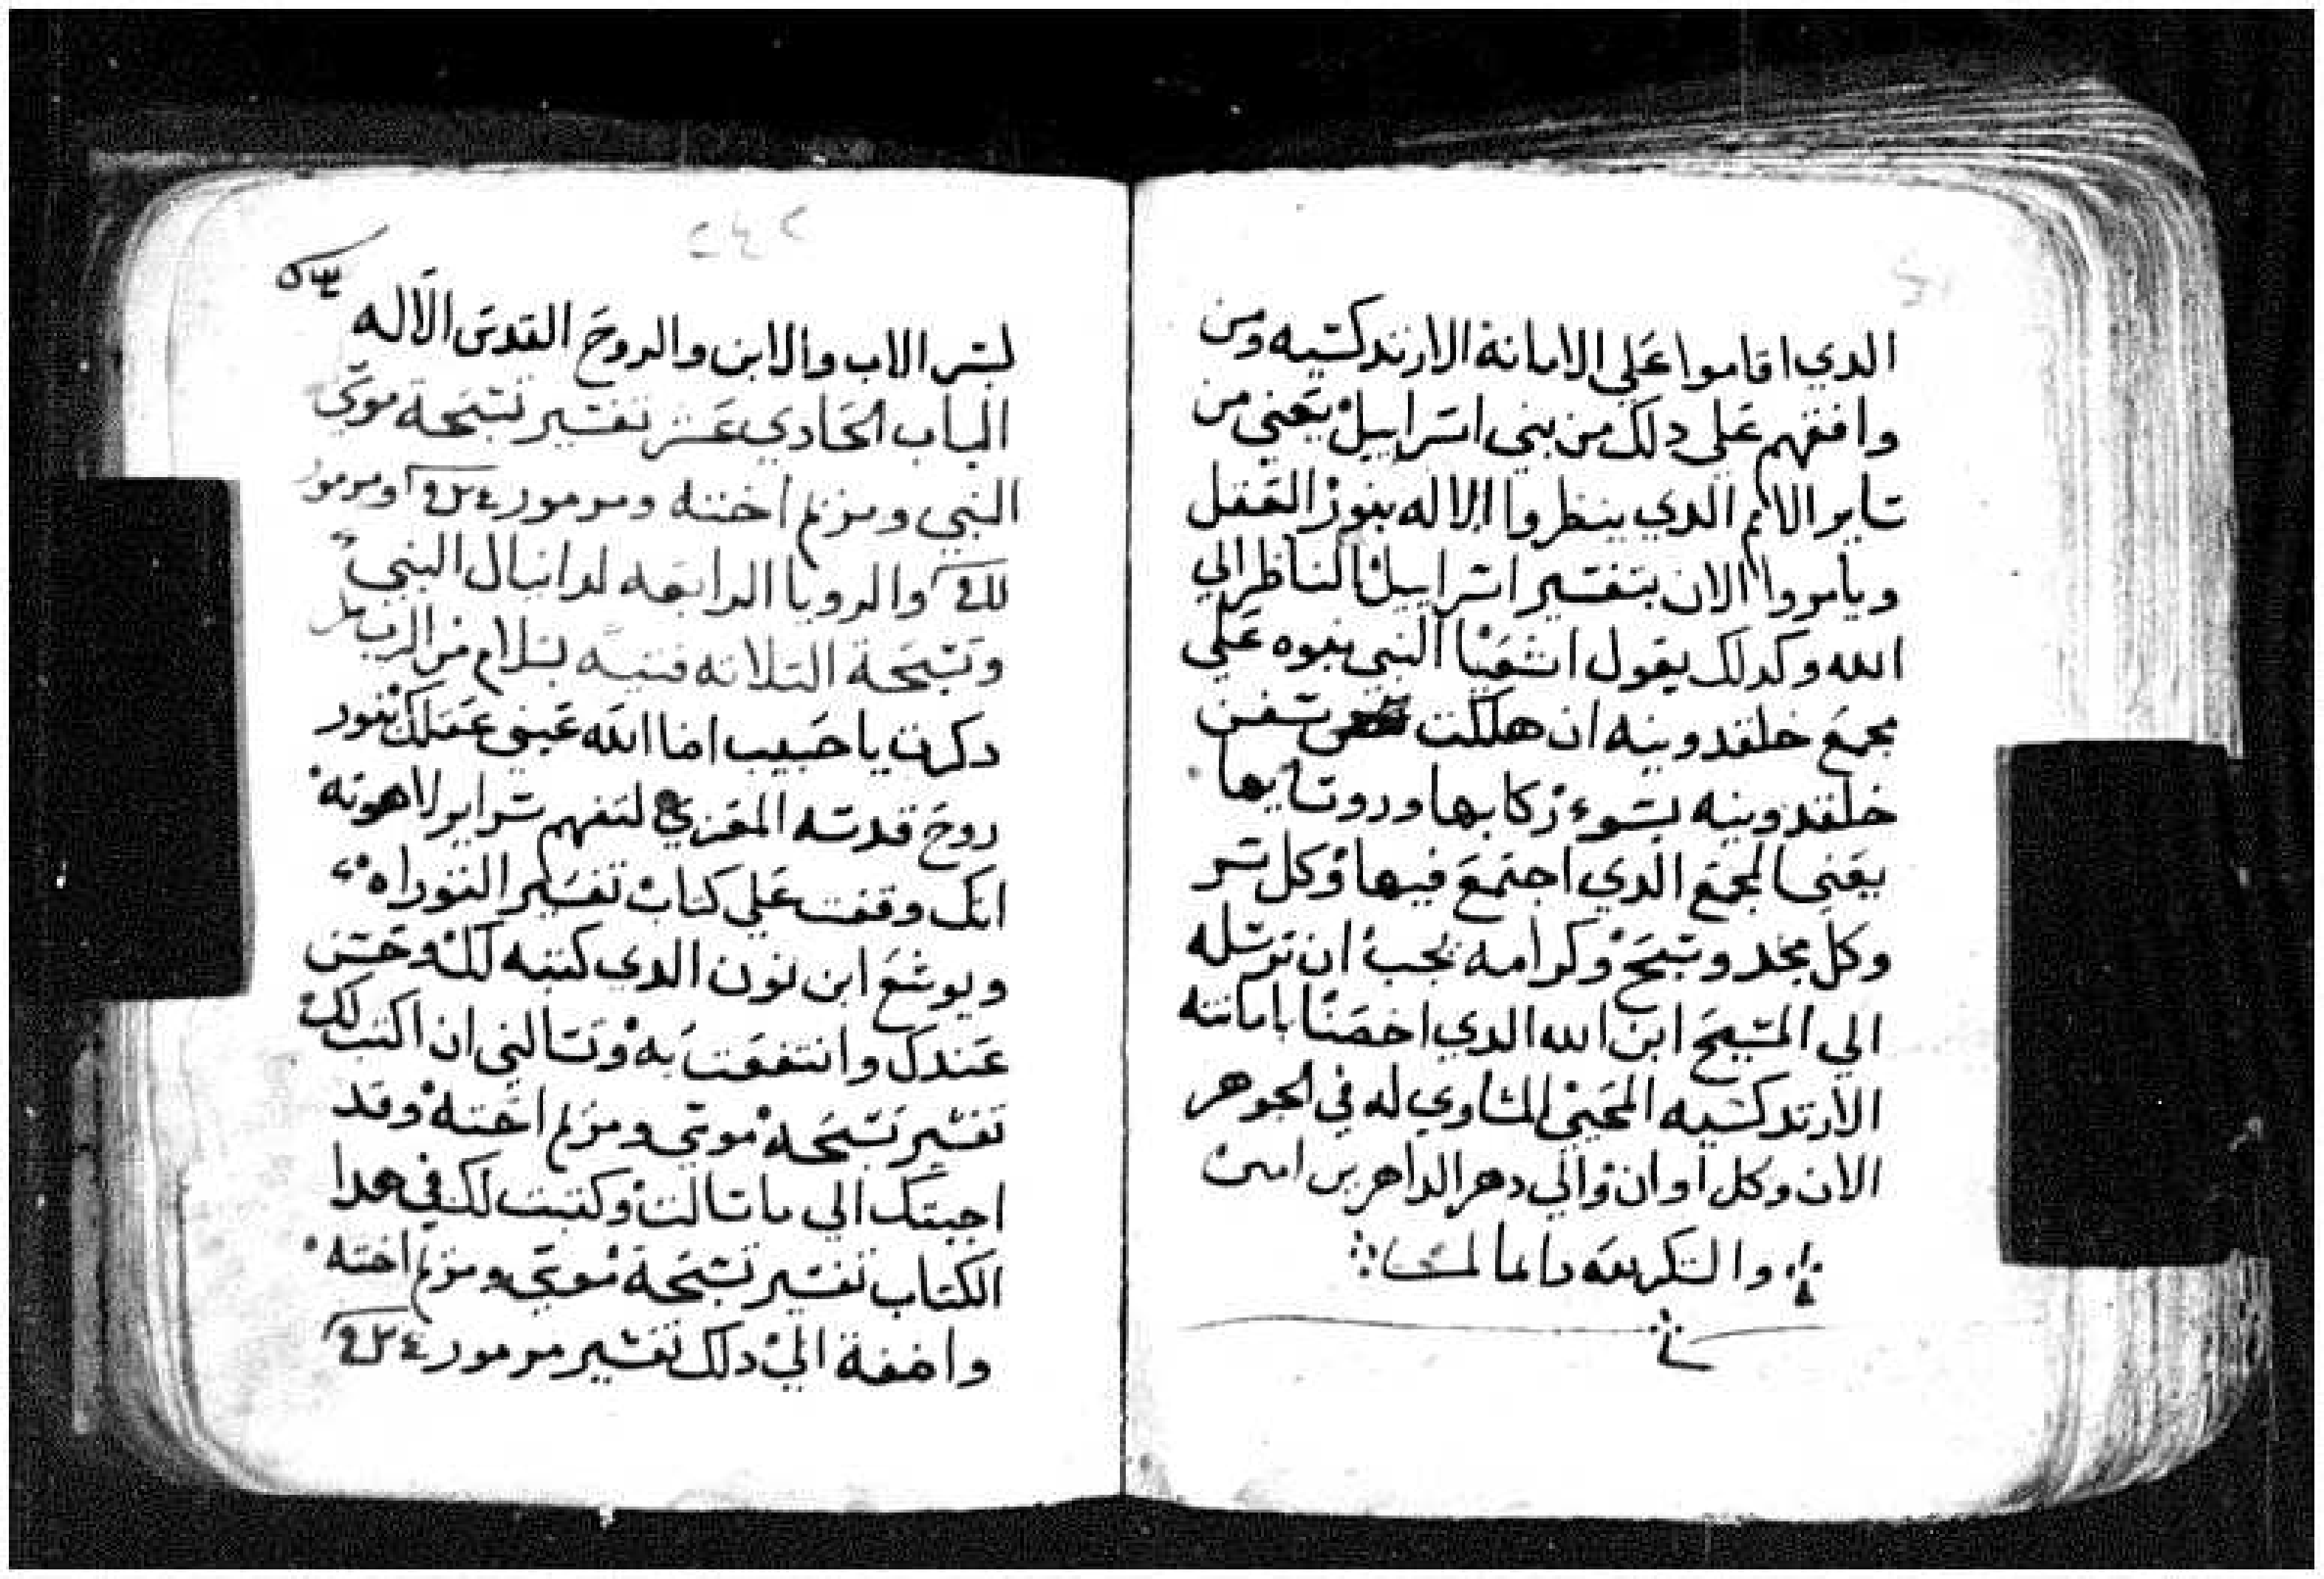 الدي اقاموا على الامانة الارتدكسيه ومن
وافقهم على دلك من بني اسراييل يعني من
ساير الامم الدي ينظروا الاله بنور العقل
ويامروا الان بتفسير اسراييل الناظر الي
الله وكدلك يقول اشعيا النبي بنبوه علي
مجمع خلقدونيه ان هلكت سفن
خلقدونيه بسوء ركابها وروسايها
يعني المجمع الدي اجتمع فيها وكل سر
وكل مجد وتسبيح وكرامه يجب ان نرسله
الي المسيح ابن الله الدي اخصنا بامانته
الارتدكسيه المحيي المساوي له في الجوهر
الان وكل اوان والي دهر الداهرين امين
والشكر لله دايما
٢٤٢
بسر الاب والابن والروح القدس الاله
الباب الحادي عشر تفسير تسبحة موسى
النبي ومريم اخته ومزمور ومزمور
والرويا الرابعه لدانيال النبي
وتسبحة التلاته فتيه بسلام من الرب
دكرت يا حبيب انا الله عيني عقلك بنور
روح قدسه المعزي لتفهم سراير لاهوته
انك وقفت علي كتاب تفسير التوراه
ويوشع ابن نون الدي كتبته لك وحسن
عندك وانتفعت به وسالتني ان اكتب لك
تفسير تسبحة موسى ومريم اخته وقد
اجبتك الي ما سالت وكتبت لك في هدا
الكتاب تفسير تسبحة موسى ومريم اخته
واضفة الي دلك تفسير مزمور